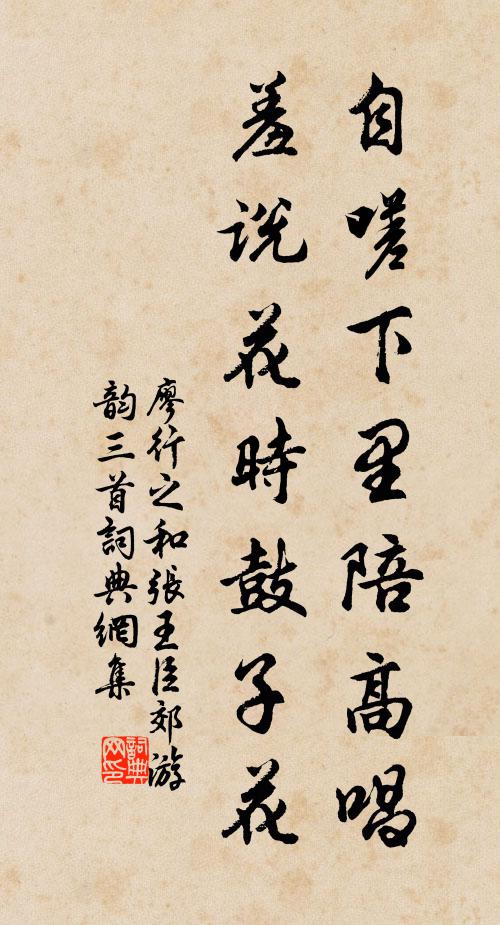 自嗟下里陪高唱
羞说花時鼓子花
廖行之和張王臣郊游
韵三首詞典網集
詞典
网印